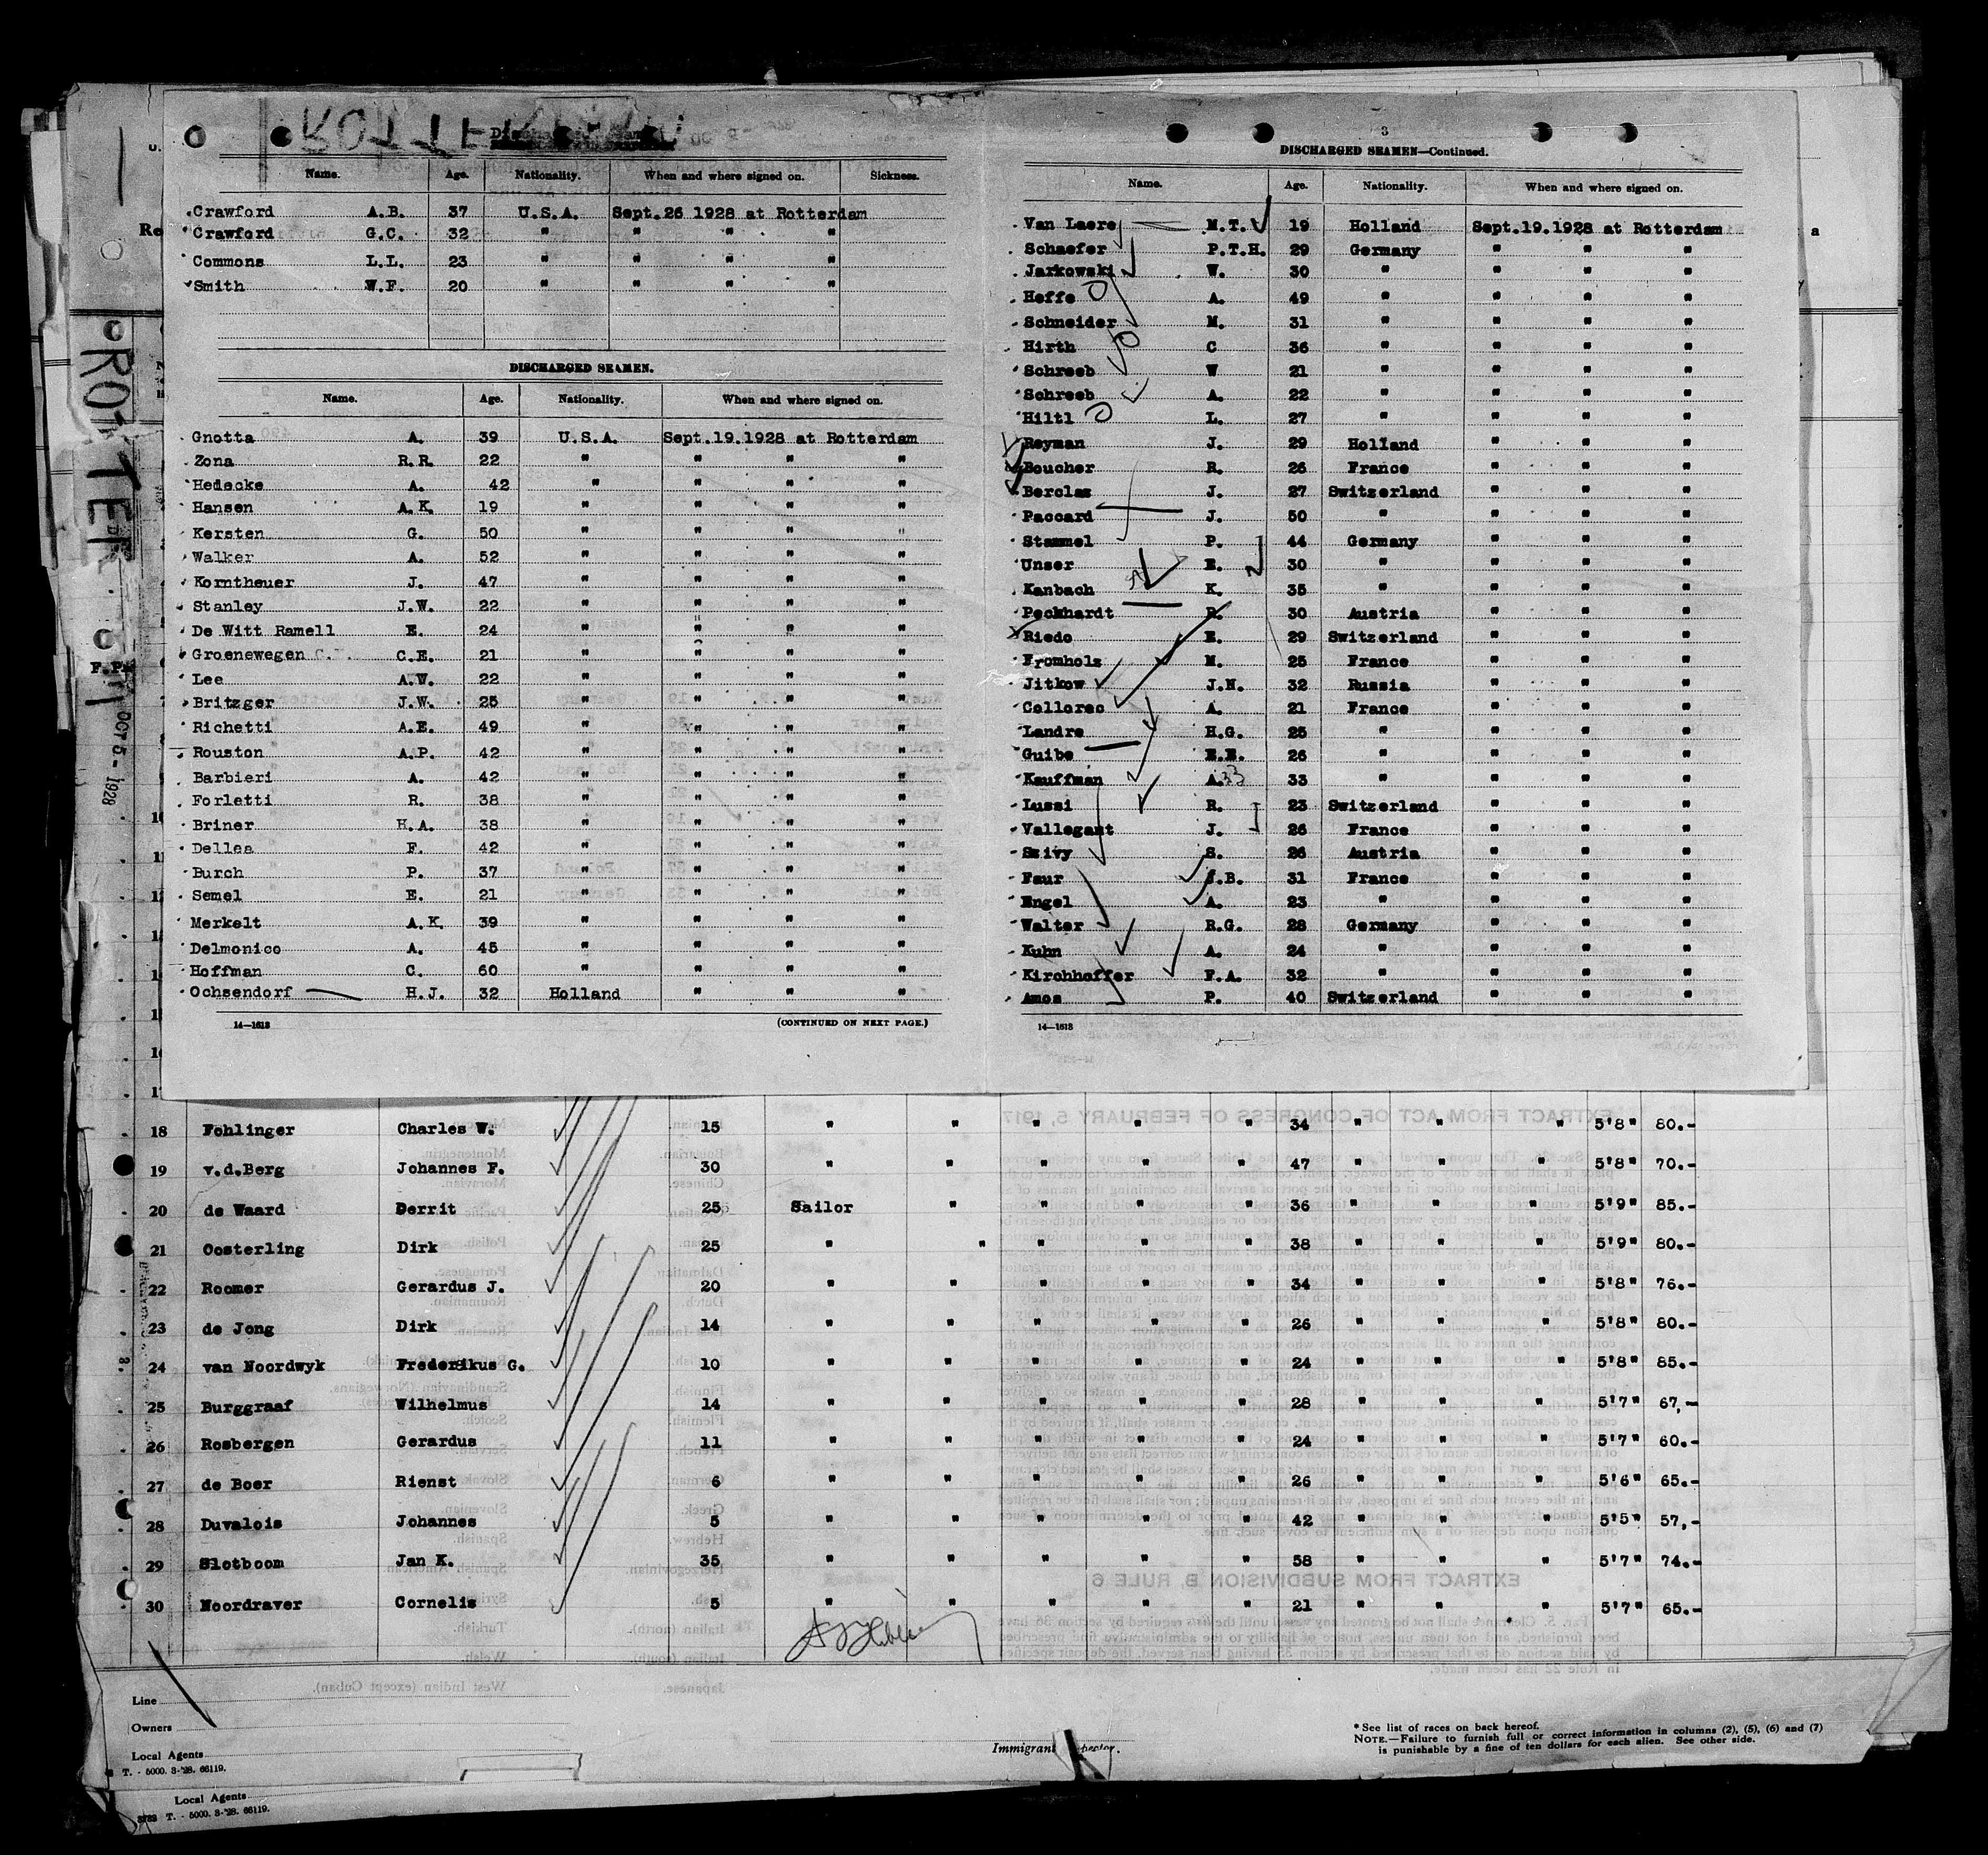 ROTTER
OCT 5 - 1928
F.P.
Re
a
Name. Age. Nationality. When and where signed on. Sickness.
Crawford A.B. 37 U.S.A. Sept.26 1928 at Rotterdam
Crawford G.C. 32 " " " "
Commons L.L. 23 " " " "
Smith W.F. 20 " " " "
DISCHARGED SEAMEN.
Name. Age. Nationality. When and where signed on.
Gnotta A. 39 U.S.A. Sept.19.1928 at Rotterdam
Zona R.R. 22 " " " "
Hedecke A. 42 " " " "
Hansen A.K. 19 " " " "
Kersten G. 50 " " " "
Walker A. 52 " " " "
Korntheuer J. 47 " " " "
Stanley J.W. 22 " " " "
De Witt Ramell E. 24 " " " "
Groenewegen C.E. 21 " " " "
Lee A.W. 22 " " " "
Britzger J.W. 25 " " " "
Richetti A.E. 49 " " " "
Rouston A.P. 42 " " " "
Barbieri A. 42 " " " "
Forletti R. 38 " " " "
Briner H.A. 38 " " " "
Dellea F. 42 " " " "
Burch P. 37 " " " "
Semel E. 21 " " " "
Merkelt A.K. 39 " " " "
Delmonico A. 45 " " " "
Hoffman C. 60 " " " "
Ochsendorf H.J. 32 Holland " " "
14—1613 (CONTINUED ON NEXT PAGE.)
3
DISCHARGED SEAMEN—Continued.
Name. Age. Nationality. When and where signed on.
Van Laere M.T. 19 Holland Sept.19.1928 at Rotterdam
Schaefer P.T.H. 29 Germany " " "
Jarkowski W. 30 " " " "
Heffe A. 49 " " " "
Schneider M. 31 " " " "
Hirth C 36 " " " "
Schreeb W 21 " " " "
Schreeb A. 22 " " " "
Hiltl L. 27 " " " "
Reyman J. 29 Holland " " "
Boucher R. 26 France " " "
Berclaz J. 27 Switzerland " " "
Paccard J. 50 " " " "
Stammel P. 44 Germany " " "
Unser E. 30 " " " "
Kanbach K. 35 " " " "
Peckhardt R. 30 Austria " " "
Riedo E. 29 Switzerland " " "
Fromholz M. 25 France " " "
Jitkow J.N. 32 Russia " " "
Collorec A. 21 France " " "
Landre H.G. 25 " " " "
Guibe E.E. 26 " " " "
Kauffman A. 33 33 " " " "
Lussi R. 23 Switzerland " " "
Vallegant J. 26 France " " "
Szivy S. 26 Austria " " "
Faur J.B. 31 France " " "
Engel A. 23 " " " "
Walter R.G. 28 Germany " " "
Kuhn A. 24 " " " "
Kirchhoffer F.A. 32 " " " "
Amos P. 40 Switzerland " " "
14—1613
18 Fohlinger Charles W. 15 " " " " " 34 " " " 5'8" 80.-
19 v.d.Berg Johannes F. 30 " " " " " 47 " " " 5'8" 70.-
20 de Waard Derrit 25 Sailor " " " " 36 " " " 5'9" 85.-
21 Oosterling Dirk 25 " " " " " 38 " " " 5'9" 80.-
22 Roomer Gerardus J. 20 " " " " " 34 " " " 5'8" 76.-
23 de Jong Dirk 14 " " " " " 26 " " " 5'8" 80.-
24 van Noordwyk Frederikus G. 10 " " " " " 24 " " " 5'8" 85.-
25 Burggraaf Wilhelmus 14 " " " " " 28 " " " 5'7" 67,-
26 Rosbergen Gerardus 11 " " " " " 24 " " " 5'7" 60.-
27 de Boer Rienst 6 " " " " " 26 " " " 5'6" 65.-
28 Duvalois Johannes 5 " " " " " 42 " " " 5'5" 57,-
29 Slotboom Jan K. 35 " " " " " 58 " " " 5'7" 74.-
30 Noordraver Cornelis 5 " " " " " 21 " " " 5'7" 65.-
Line
Owners
Local Agents
T. - 5000. 3-'28. 66119.
Immigrant
* See list of races on back hereof.
NOTE.—Failure to furnish full or correct information in columns (2), (5), (6) and (7)
is punishable by a fine of ten dollars for each alien. See other side.
Local Agents
T. - 5000. 3-'28. 66119.